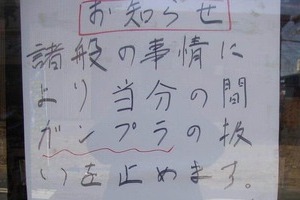 お知らせ
諸般の事情に
より当分の間
ガンプラの扱
いを止めます。